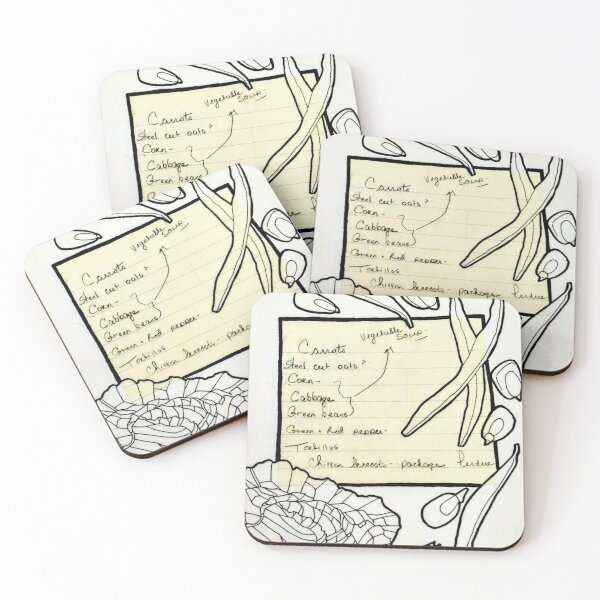 Vegetable
Carrots Soup
Steel cut oats?
Corn-
Cabbage
Green beans
Vegetable
Carrots Soup
Steel cut oats?
Corn-
Cabbage
Green beans
Green + Red pepper-
Tortillas
Chicken breasts - package Perdue
Vegetable
Carrots Soup
Steel cut oats?
Corn-
Cabbage
Green beans
Green + Red pepper-
Tortillas
Chicken breasts - packag
Vegetable
Carrots Soup
Steel cut oats?
Corn-
Cabbage
Green beans
Green + Red pepper-
Tortillas
Chicken breasts - package Perdue